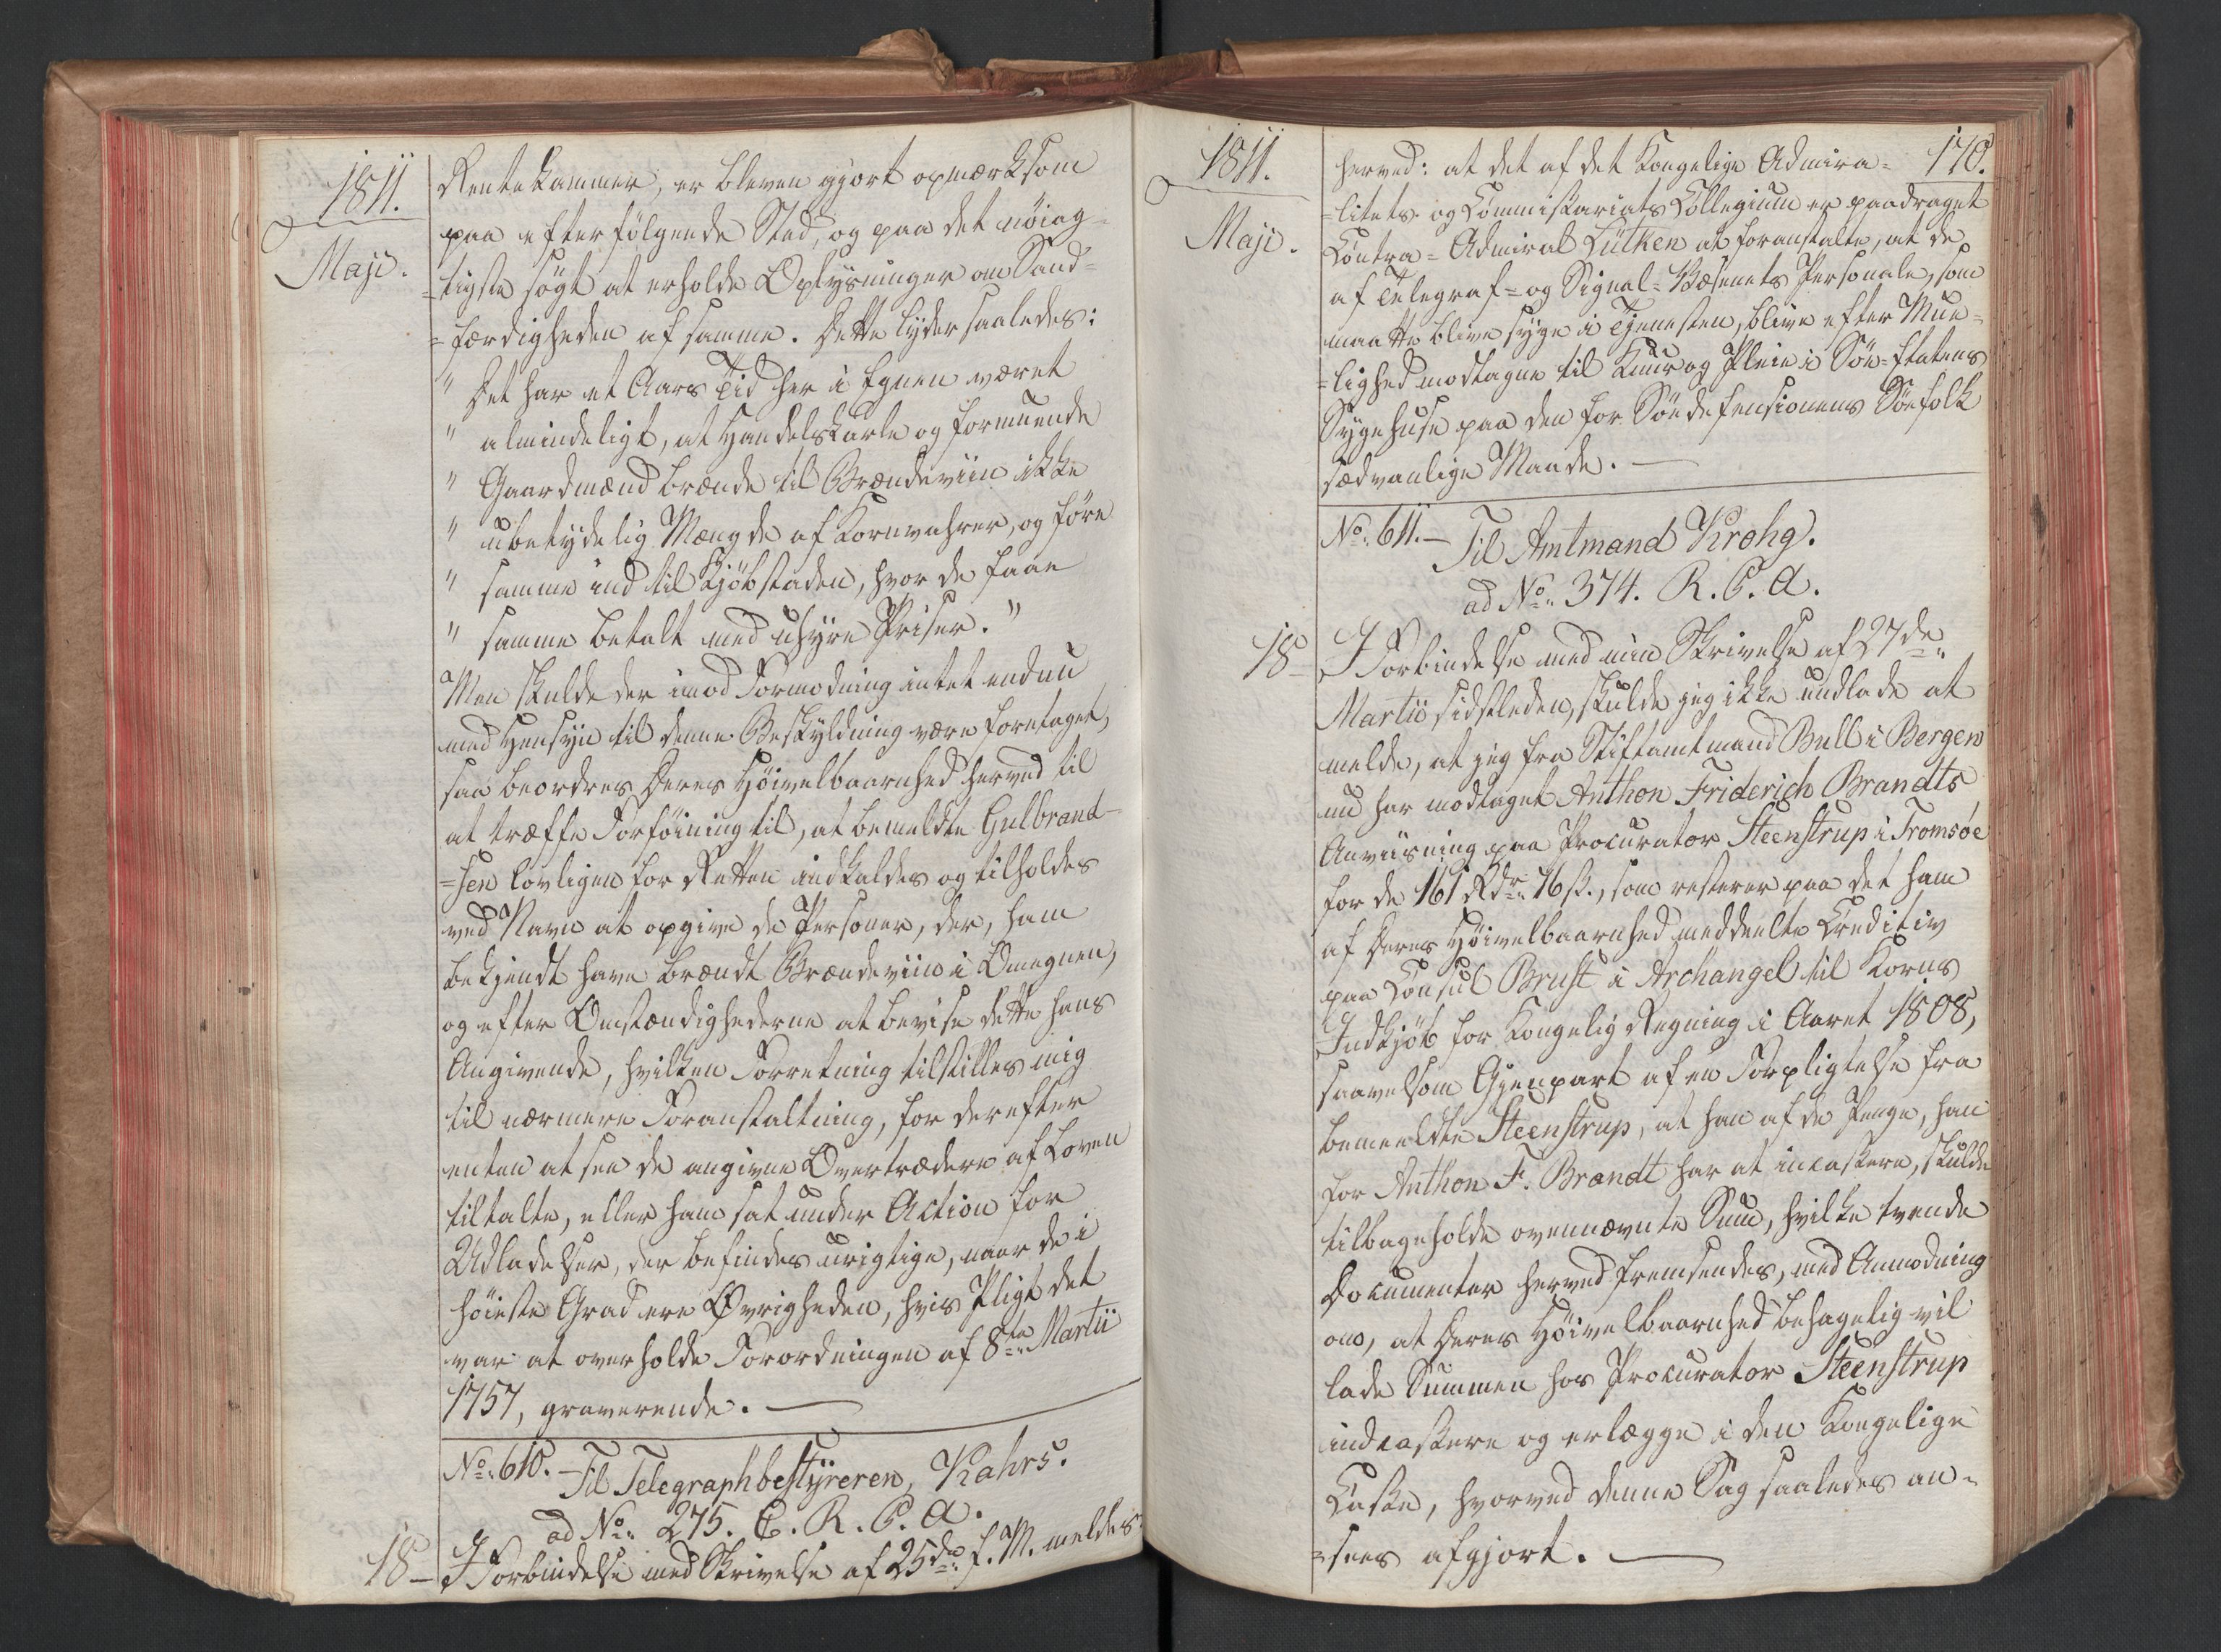 1811.
Maji.
Rentekammer, er bleven gjort opmærksom
paa efterfölgende Sted, og paa det nöiag-
=tigste sögt at erholde Oplysninger om Sand=
=færdigheden af samme. Dette lyder saaledes:
" Det har et Aars Tid her i Egnen været
" almindeligt, at Handelskarle og formuende
" Gaardmænd brænde til Brændeviin ikke
" ubetydelig Mængde af Kornvahrer, og före
" samme ind til Kjöbstaden, hvor de faae
" samme betalt med uhyre Priser."
Men skulde der imod Formodning intet endnu
med Hensyn til denne Beskyldning være foretaget,
saa beordres Deres Höivelbaarnhed herved til
at træffe Forföining til, at bemeldte Gulbrand-
=sen lovligen for Retten indkaldes og tilholdes
ved Navn at opgive de Personer, der, ham
bekjendt have brændt Brændeviin i Omegnen,
og efter Omstændighederne at bevise dette hans
Angivende, hvilken Forretning tilstilles mig
til nærmere Foranstaltning, for derefter
enten at see de angivne Overtrædere af Loven
tiltalte, eller ham sat under Action for
Udladelser, der befindes urigtige, naar de i
höieste Grad ere Øvrigheden, hvis Pligt det
var at overholde Forordningen af 8de Martii
1757, graverende. —
No. 610. — Til Telegraphbestÿreren, Kahrs.
ad No. 275. C. R. P. A.
18 — I Forbindelse med Skrivelse af 25de f. M. meldes
1811.
Maji.
170.
herved: at det af det Kongelige Admira=
=litets- og Commissariats Collegium er paadraget
Contra=Admiral Lütken at foranstalte, at de
af Telegraf= og Signal=Væsenets Personale, som
maatte blive syge i Tjenesten, blive efter Mue=
=lighed modtagne til Kuur og Pleie i Söe=Etatens
Sygehuse paa den for Söedefensionens Söefolk
sædvanlige Maade. —
No. 611. — Til Amtmand Krohg.
ad No. 374. R. P. A.
18 — I Forbindelse med min Skrivelse af 27de
Martii sidstleden, skulde jeg ikke undlade at
melde, at jeg fra Stiftamtmand Bull i Bergen
nu har modtaget Anthon Friderich Brandts
Anviisning paa Procurator Steenstrup i Tromsöe
for de 161 Rdr. 76 ß., som resterer paa det ham
af Deres Höivelbaarnhed meddeelte Creditiv
paa Consul Brust i Archangel til Korns
Indkjöb for Kongelig Regning i Aaret 1808,
saavelsom Gjenpart af en Forpligtelse fra
bemeeldte Steenstrup, at han af de Penge, han
for Anthon F. Brandt har at incassere, skulde
tilbageholde ovennævnte Sum, hvilke tvende
Documenter herved fremsendes, med Anmodning
om, at Deres Höivelbaarnhed behagelig vil
lade Summen hos Procurator Steenstrup
indcassere og erlægge i den Kongelige
Casse, hvorved denne Sag saaledes an=
=sees afgjort. —